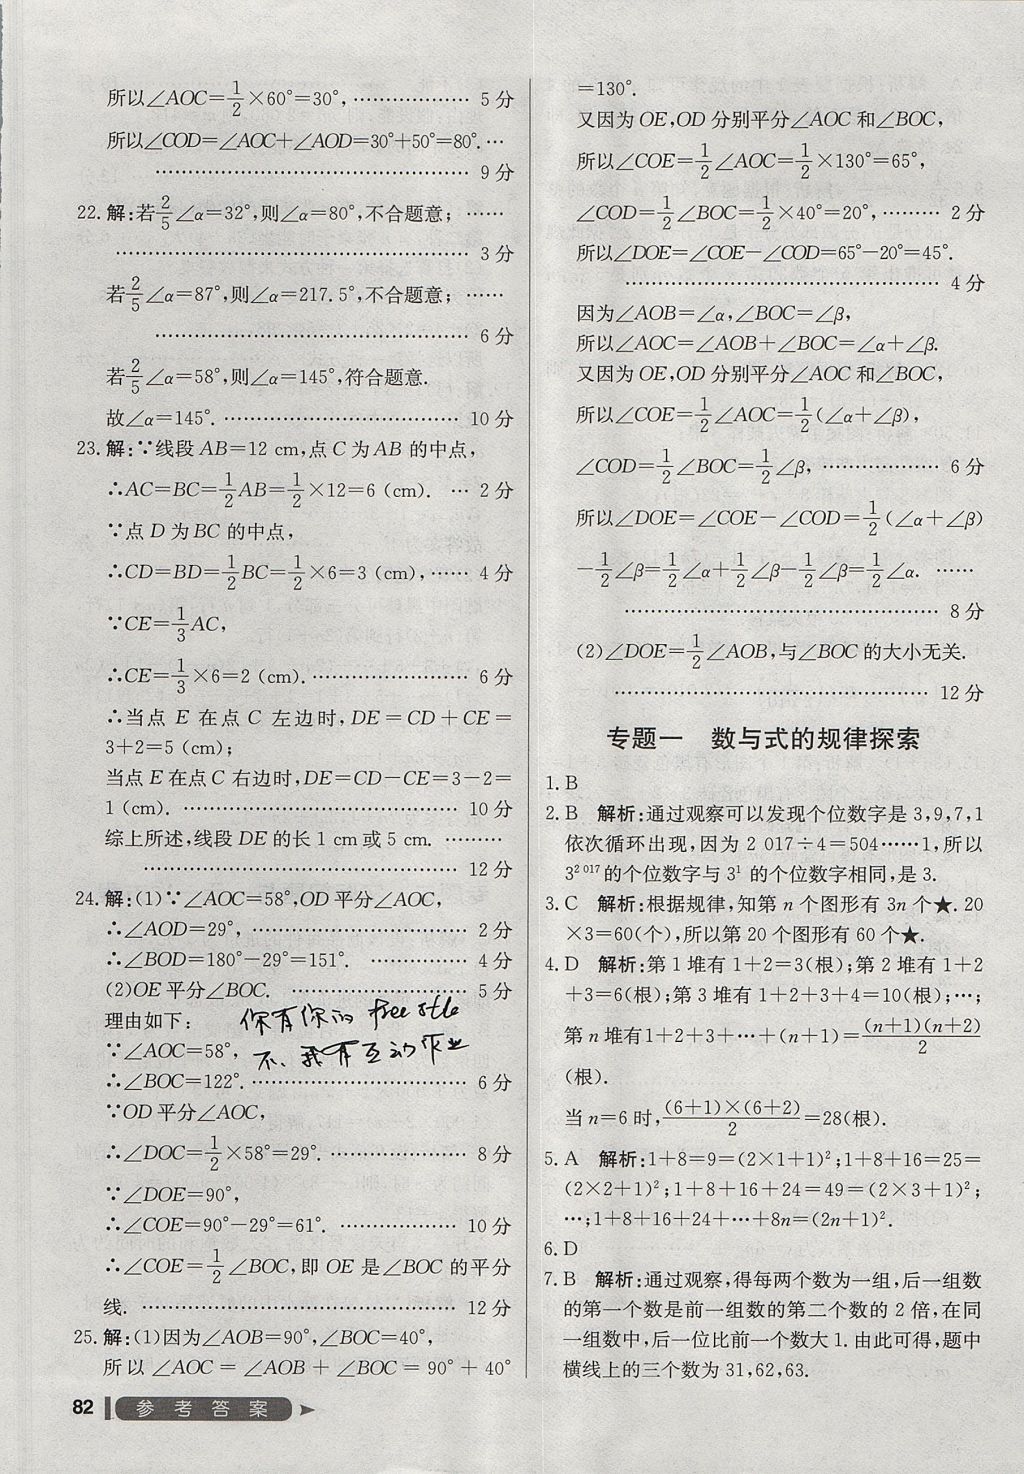 所以∠AOC=1/2×60°=30°, ……………… 5分
所以∠COD=∠AOC+∠AOD=30°+50°=80°. …
……………………………………… 9分
22. 解:若2/5∠α=32°,则∠α=80°,不合题意; ……
……………………………………… 3分
若2/5∠α=87°,则∠α=217.5°,不合题意; ……
……………………………………… 6分
若2/5∠α=58°,则∠α=145°,符合题意.
故∠α=145°. …………………………… 10分
23. 解:∵线段AB=12 cm,点C为AB的中点,
∴AC=BC=1/2AB=1/2×12=6 (cm). … 2分
∵点D为BC的中点,
∴CD=BD=1/2BC=1/2×6=3 (cm), …… 4分
∵CE=1/3AC,
∴CE=1/3×6=2 (cm). ………………… 6分
∴当点 E 在点 C 左边时, DE=CD+CE=
3+2=5 (cm);
当点E在点C右边时,DE=CD-CE=3-2=
1 (cm). ………………………………… 10分
综上所述,线段DE的长1 cm或5 cm. ………
……………………………………… 12分
24. 解:(1)∵∠AOC=58°,OD平分∠AOC,
∴∠AOD=29°, ………………………… 2分
∴∠BOD=180°-29°=151°. ………… 4分
(2)OE平分∠BOC. …………………… 5分
理由如下: 你有你的 free style
∵∠AOC=58°, 不、我有互动作业
∴∠BOC=122°. ………………………… 6分
∵OD平分∠AOC,
∴∠DOC=1/2×58°=29°. ……………… 8分
∵∠DOE=90°,
∴∠COE=90°-29°=61°. …………… 10分
∴∠COE=1/2∠BOC,即OE是∠BOC的平分
线. ……………………………………… 12分
25. 解:(1)因为∠AOB=90°,∠BOC=40°,
所以∠AOC=∠AOB+∠BOC=90°+40°
82 参考答案
=130°.
又因为OE,OD分别平分∠AOC和∠BOC,
所以∠COE=1/2∠AOC=1/2×130°=65°,
∠COD=1/2∠BOC=1/2×40°=20°, ……… 2分
所以∠DOE=∠COE-∠COD=65°-20°=45°.
……………………………………… 4分
因为∠AOB=∠α,∠BOC=∠β,
所以∠AOC=∠AOB+∠BOC=∠α+∠β.
又因为OE,OD分别平分∠AOC和∠BOC,
所以∠COE=1/2∠AOC=1/2(∠α+∠β),
∠COD=1/2∠BOC=1/2∠β, ……………… 6分
所以∠DOE=∠COE-∠COD=1/2(∠α+∠β)
-1/2∠β=1/2∠α+1/2∠β-1/2∠β=1/2∠α. ……
……………………………………… 8分
(2)∠DOE=1/2∠AOB,与∠BOC的大小无关.
……………………………………… 12分
专题一 数与式的规律探索
1. B
2. B 解析:通过观察可以发现个位数字是3,9,7,1
依次循环出现,因为2 017÷4=504……1,所以
3^2 017的个位数字与3^1 的个位数字相同,是3.
3. C 解析:根据规律,知第n个图形有3n个★. 20
×3=60(个),所以第20个图形有60个★.
4. D 解析:第1堆有1+2=3(根);第2堆有1+2
+3=6(根);第3堆有1+2+3+4=10(根);…;
第n堆有1+2+3+…+(n+1)=(n+1)(n+2)/2
(根).
当n=6时,(6+1)×(6+2)/2=28(根).
5. A 解析:1+8=9=(2×1+1)²;1+8+16=25=
(2×2+1)²;1+8+16+24=49=(2×3+1)²;
…;1+8+16+24+…+8n=(2n+1)².
6. D
7. B 解析:通过观察,得每两个数为一组,后一组数
的第一个数是前一组数的第二个数的2倍,在同
一组数中,后一位比前一个数大1.由此可得,题中
横线上的三个数为31,62,63.